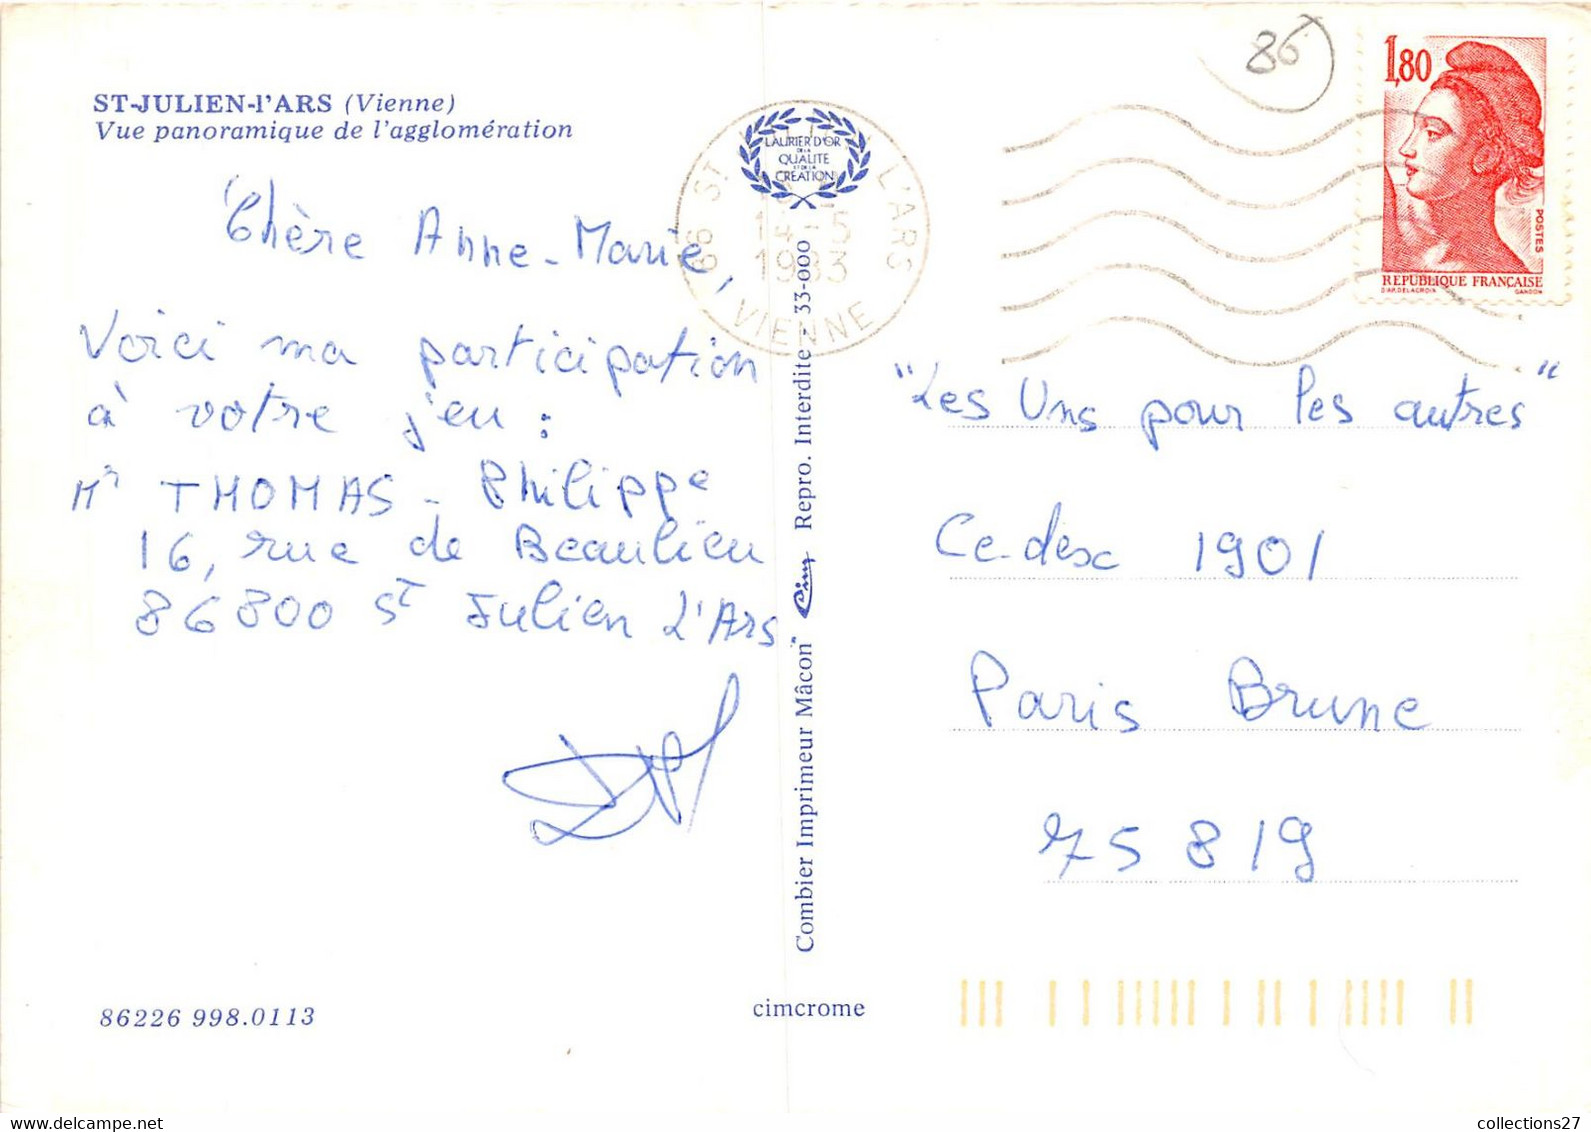 ST-JULIEN-l'ARS (Vienne)
Vue panoramique de l'agglomération
Chère Anne-Marie,
Voici ma participation
à votre jeu :
Mr THOMAS - Philippe
16, rue de Beaulieu
86800 St Julien L'Ars
86226 998.0113
cimcrome
Combier Imprimeur Mâcon "Cim" Repro. Interdite - 33-000
LAURIER D'OR
DE LA
QUALITE
ET DE LA
CREATION
86 ST L'ARS
14-5
1983
VIENNE
86
1,80
POSTES
REPUBLIQUE FRANÇAISE
D'AP. DELACROIX GANDON
"Les Uns pour les autres"
Cedex 1901
Paris Brune
75819
collections27